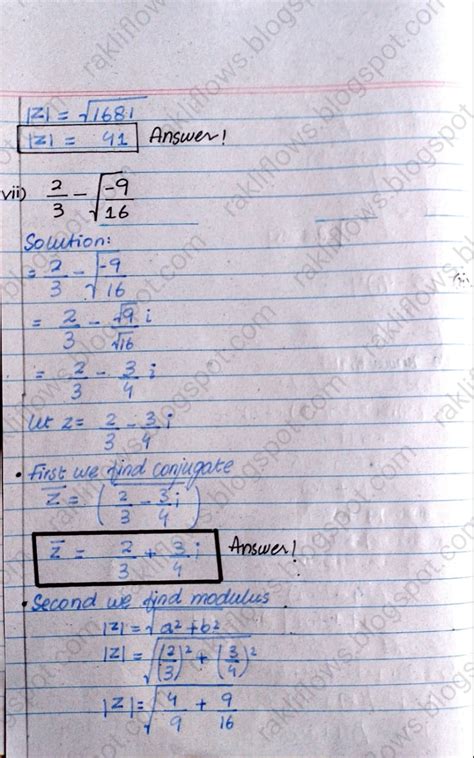 |Z| = √1681
|Z| = 41 Answer!
vii) 2/3 - √(-9/16)
Solution:
= 2/3 - √(-9/16)
= 2/3 - √9/√16 i
= 2/3 - 3/4 i
let z = 2/3 - 3/4 i
• First we find conjugate
z̅ = (2/3 - 3/4 i)
z̅ = 2/3 + 3/4 i Answer!
• Second we find modulus
|z| = √(a² + b²)
|z| = √((2/3)² + (3/4)²)
|z| = √(4/9 + 9/16)
rakliflows.blogspot.com